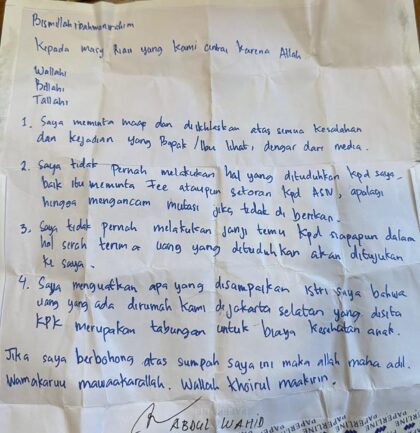 Bismillahirahmanirrahim
Kepada masy Riau yang kami cintai karena Allah
Wallahi
Billahi
Tallahi
1. Saya meminta maap dan diikhlaskan atas semua kesalahan
dan kejadian yang Bapak/Ibu lihat, dengar dari media.
2. Saya tidak pernah melakukan hal yang dituduhkan kpd saya
baik itu meminta Fee ataupun setoran kpd ASN, apalagi
hingga mengancam mutasi jika tidak di berikan.
3. Saya tidak pernah melakukan janji temu kpd siapapun dalam
hal serah terima uang yang dituduhkan akan ditujukan
ke saya.
4. Saya menguatkan apa yang disampaikan istri saya bahwa
uang yang ada dirumah kami dijakarta selatan yang disita
KPK merupakan tabungan untuk biaya kesehatan anak.
Jika saya berbohong atas sumpah saya ini maka allah maha adil.
Wamakaruu mawaakarallah. Wallah khoirul maakirin.
ABDUL WAHID
PAPERLINE